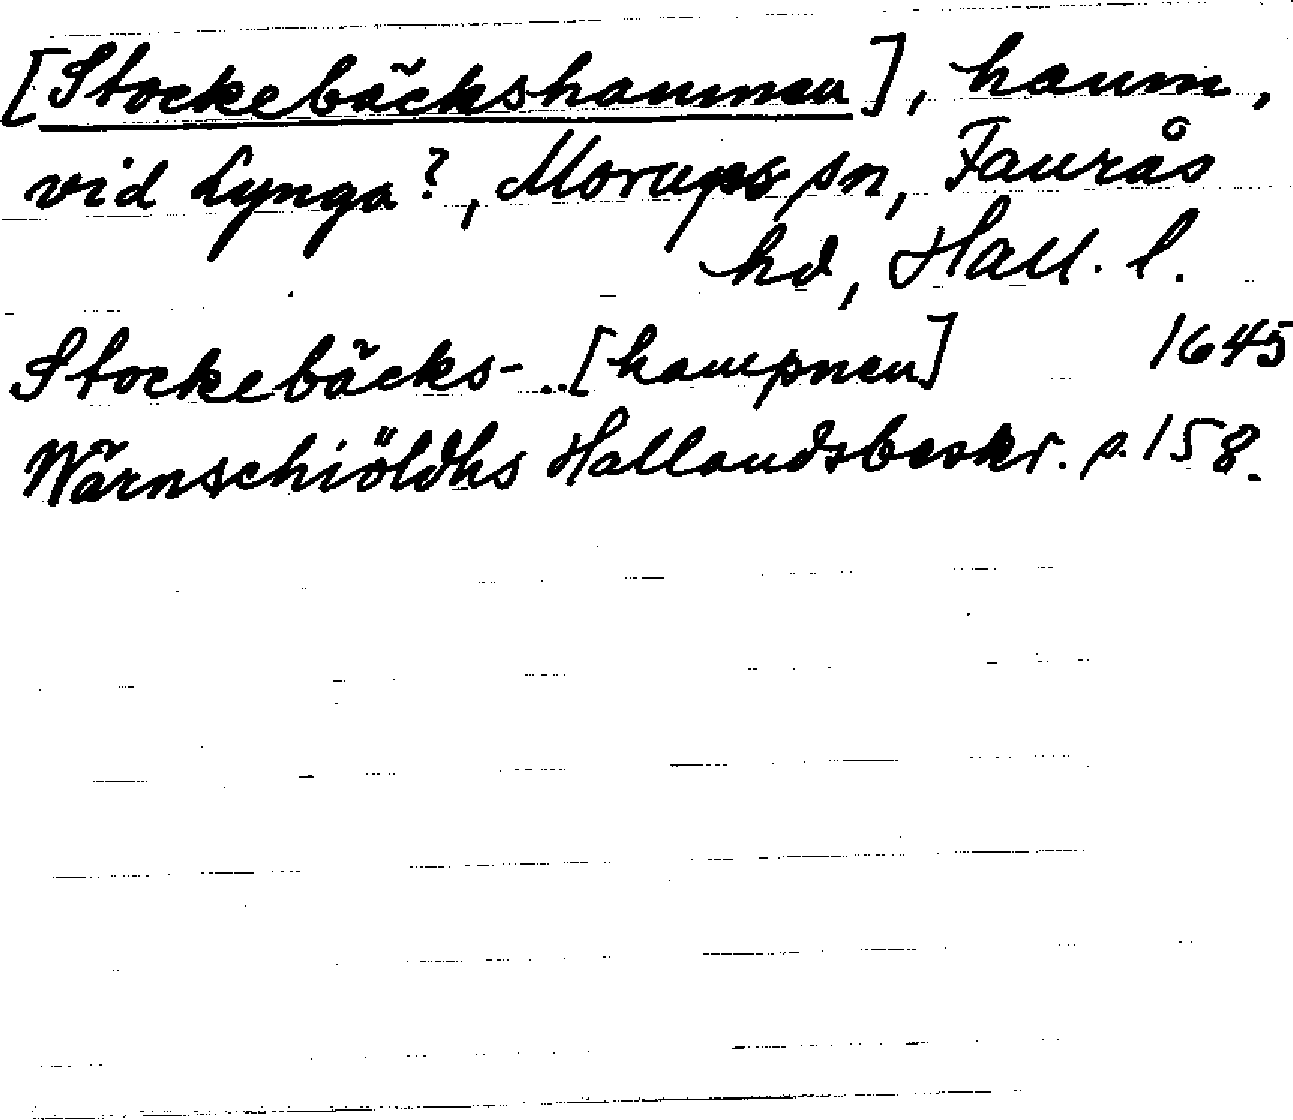 [Stockebäckshamnen], hamn,
vid Lynga?, Morups sn, Faurås
hd, Hall. l.
Stockebäcks- .. [hampnen] 1645
Wärnschiöldhs Hallandsbeskr. s. 158.